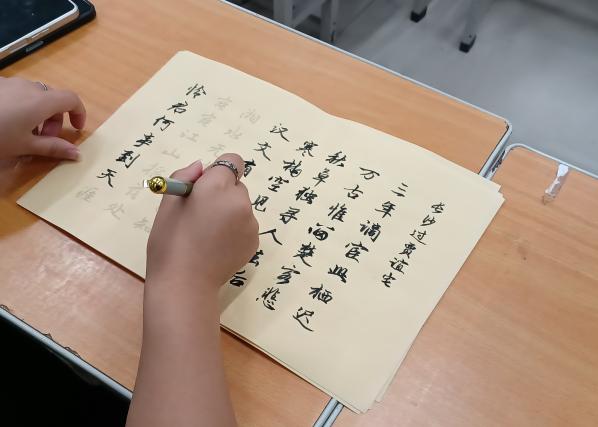 长沙过贾谊宅
三年谪宦此栖迟
万古惟留楚客悲
秋草独寻人去后
寒林空见
汉文有
湘水无 知
寂寂江山摇落处
怜君何事到天涯